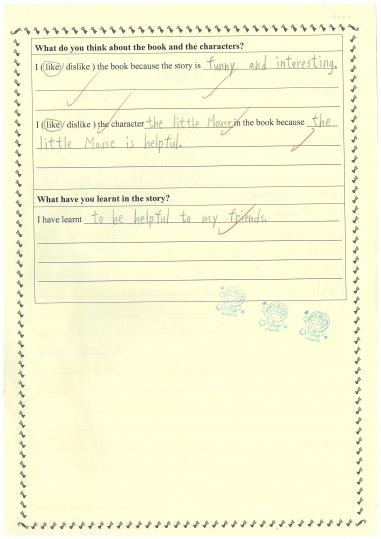 What do you think about the book and the characters?
I ( like / dislike ) the book because the story is funny and interesting.
I ( like / dislike ) the character the little Mouse in the book because the
little Mouse is helpful.
What have you learnt in the story?
I have learnt to be helpful to my friends.